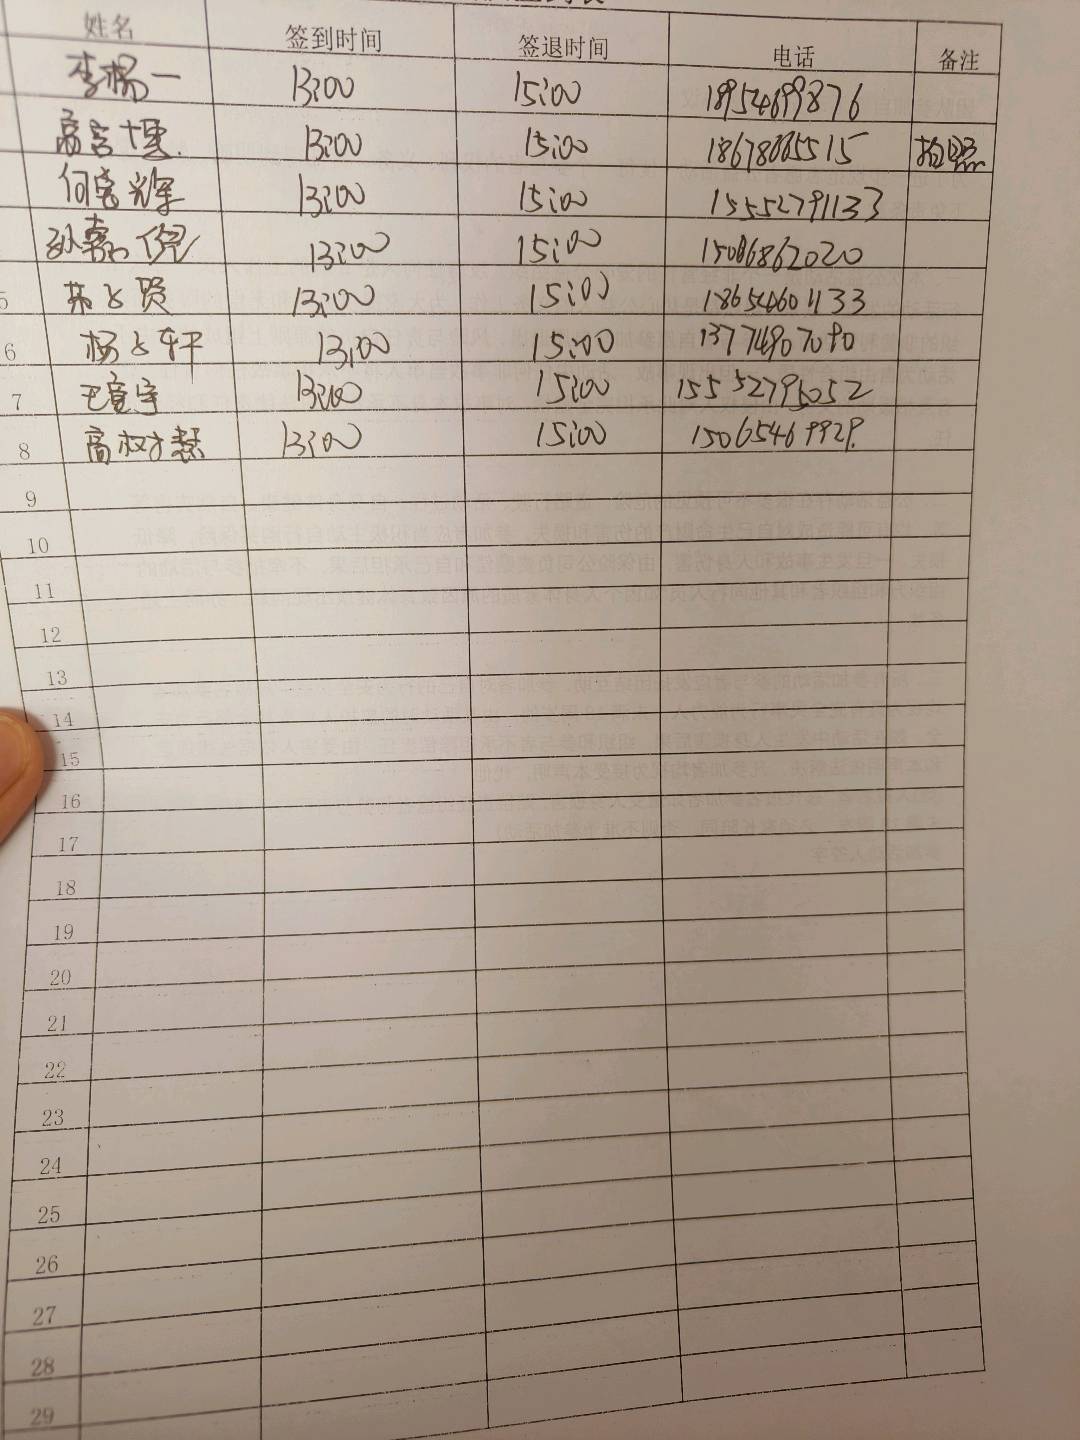 姓名 签到时间 签退时间 电话 备注
李杨一 13:00 15:00 18954699876
高言 13:00 15:00 15 拍照
何宪辉 13:00 15:00 15552791133
孙嘉倪 13:00 15:00 15086862020
5 13:00 15:00 18654601133
6 杨 轩 13:00 15:00 13774907080
7 王竟宇 13:00 15:00 15552795052
8 高 慧 13:00 15:00 15065469929
9
10
11
12
13
14
15
16
17
18
19
20
21
22
23
24
25
26
27
28
29